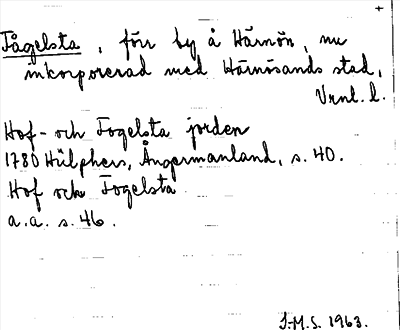 +
Fågelsta, förr by å Härnön, nu
inkorporerad med Härnösands stad,
Vrnl. l.
Hof- och Fogelsta jorden
1780 Hülphers, Ångermanland, s. 40.
Hof och Fogelsta
a.a. s. 46.
J.M.S. 1963.